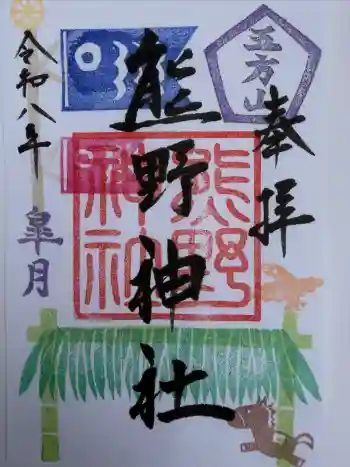 五方山
奉拝
熊野神社
熊野
神社
令和八年
皐月